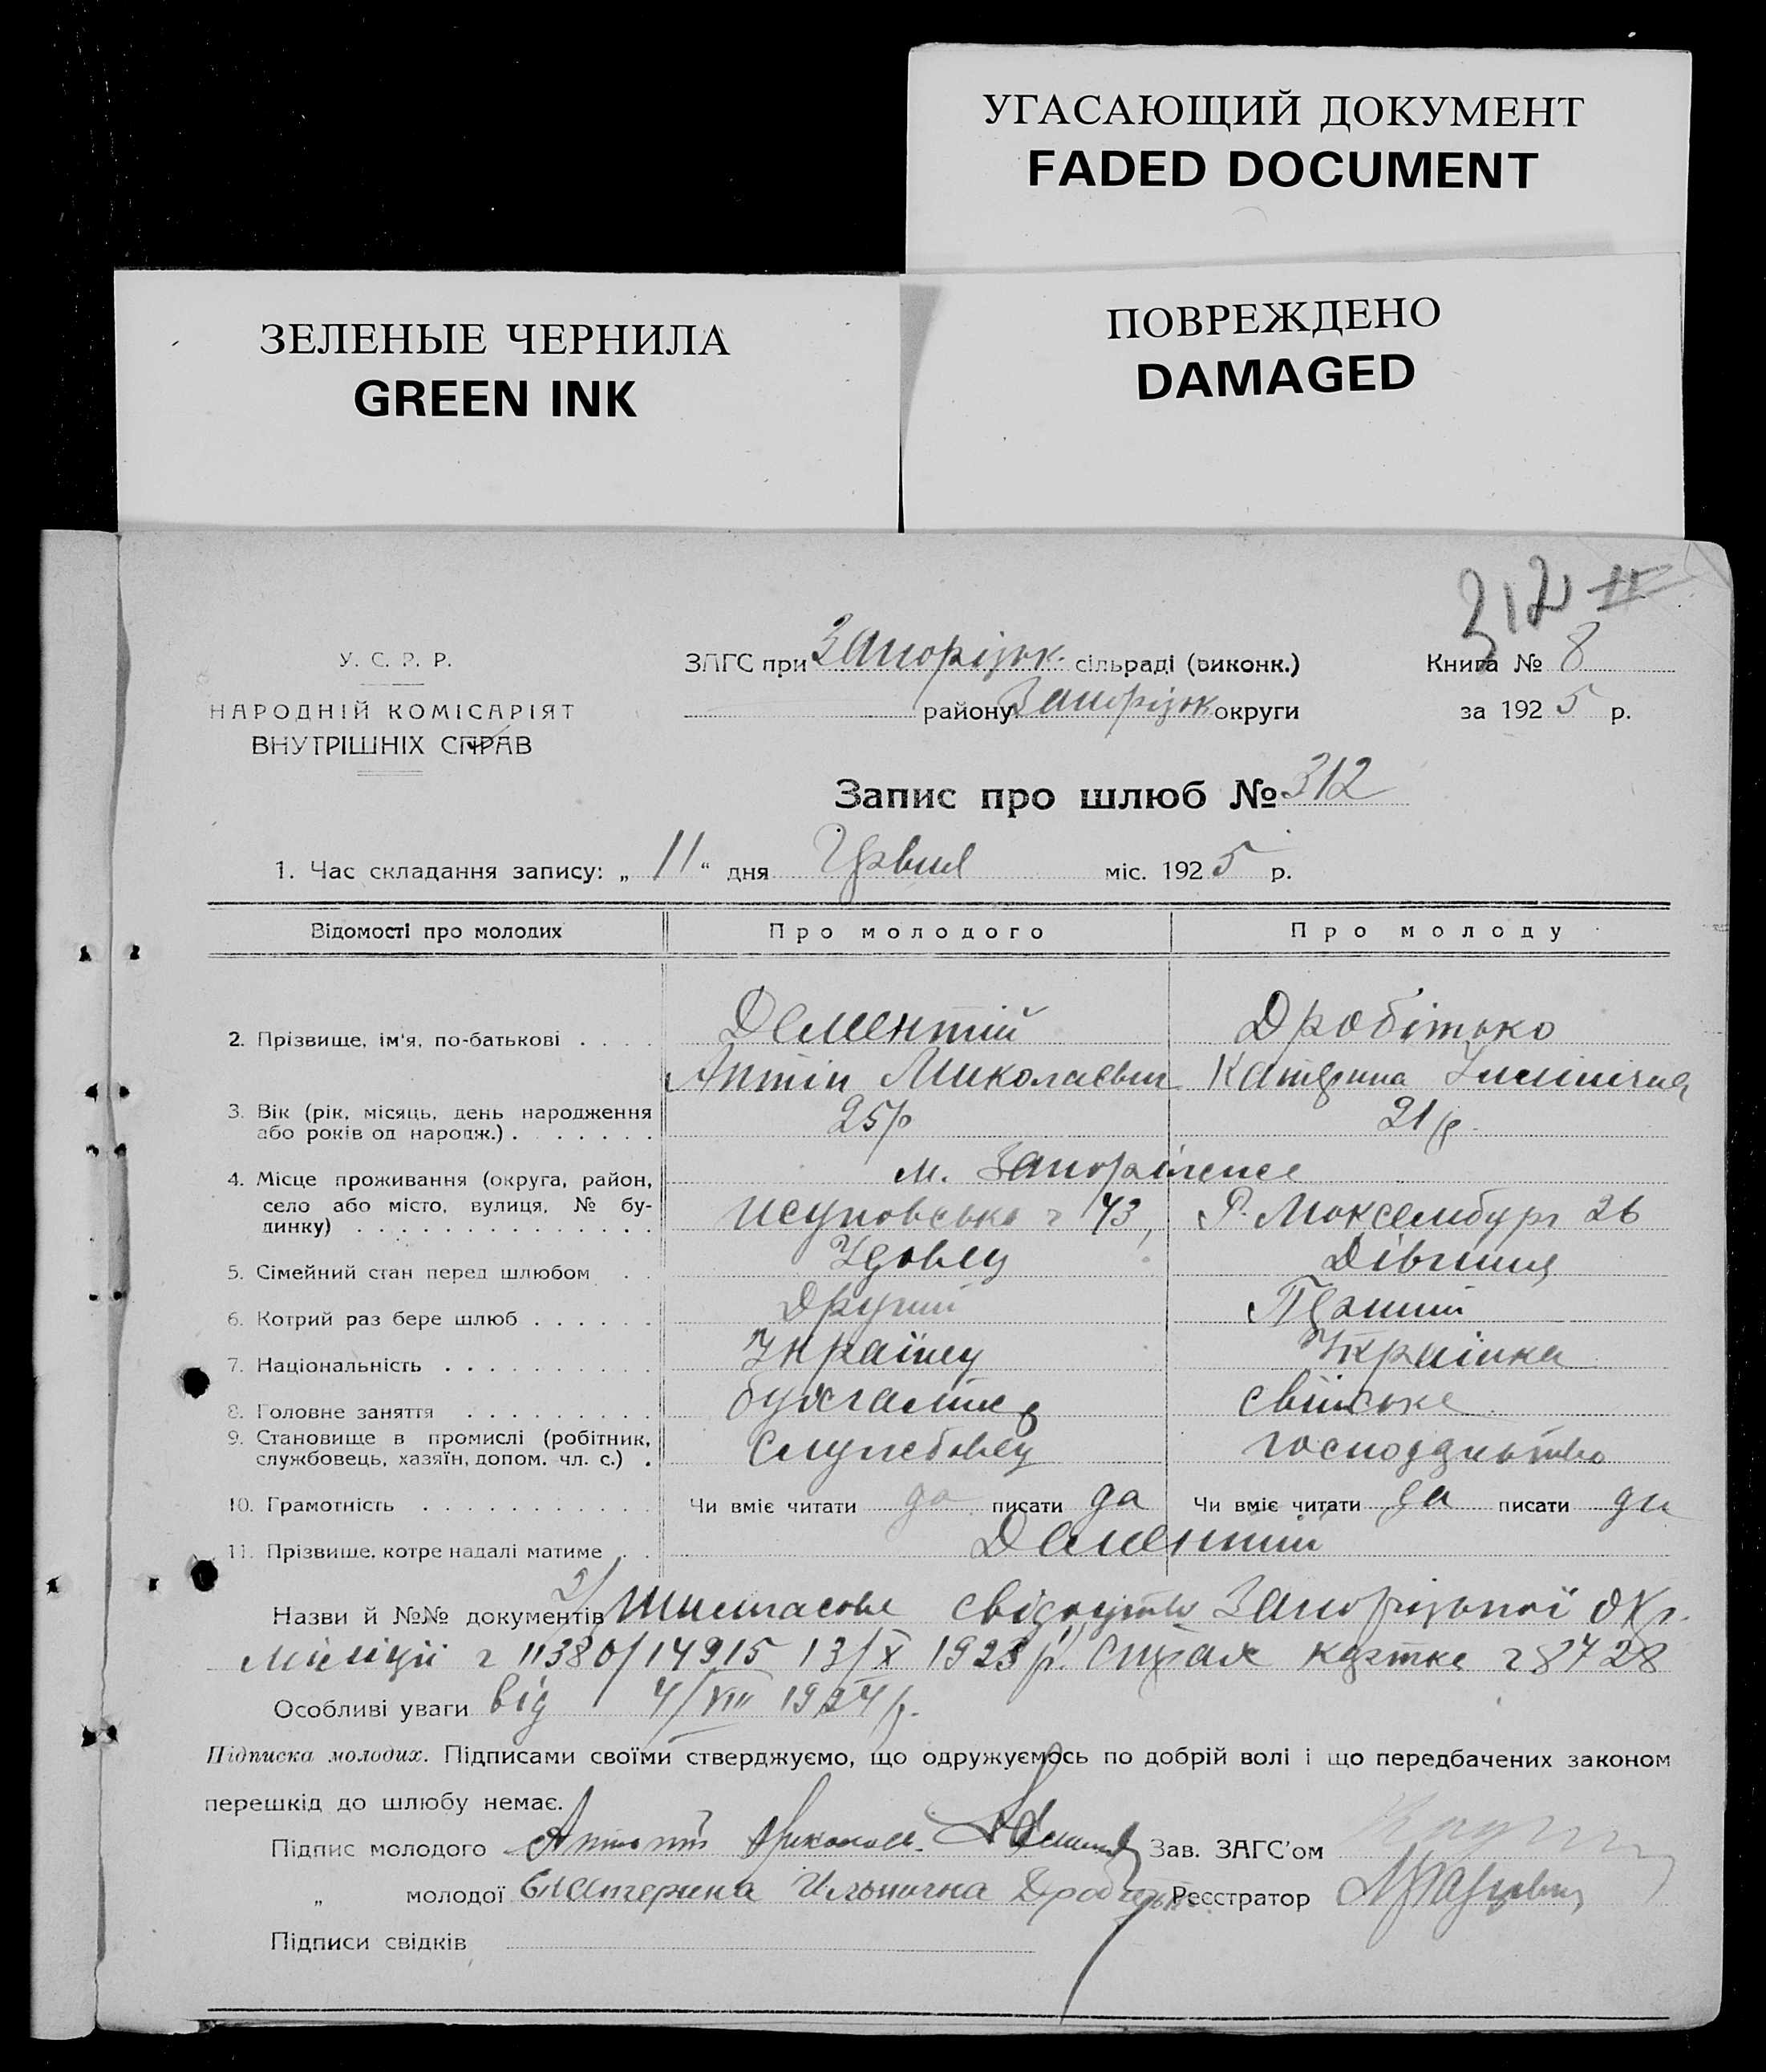 УГАСАЮЩИЙ ДОКУМЕНТ
FADED DOCUMENT
ЗЕЛЕНЫЕ ЧЕРНИЛА
GREEN INK
ПОВРЕЖДЕНО
DAMAGED
312 II
У. С. Р. Р.
НАРОДНІЙ КОМІСАРІЯТ
ВНУТРІШНІХ СПРАВ
ЗАГС при Запорізьк. сільраді (виконк.)
району Запорізьк округи
Книга № 8
за 1925 р.
Запис про шлюб № 312
1. Час складання запису: „ 11 “ дня Червня міс. 1925 р.
Відомості про молодих Про молодого Про молоду
2. Прізвище, ім'я, по-батькові . . . . Дементій Дробітько
Антін Миколаєвич Катерина
3. Вік (рік, місяць, день народження
або років од народж.) . . . . . . . 25р 21 р.
4. Місце проживання (округа, район,
село або місто, вулиця, № бу-
динку) . . . . . . . . . . . . . .
м. Запоріжжє
ч 43, Р. Люксембург 26
5. Сімейний стан перед шлюбом . . Удовец Дівчина
6. Котрий раз бере шлюб . . . . . . Другий Перший
7. Національність . . . . . . . . . . Українец Українка
8. Головне заняття . . . . . . . . . бухгалтер свійське
9. Становище в промислі (робітник,
службовець, хазяїн, допом. чл. с.) . службовец господарство
10. Грамотність . . . . . . . . . . . Чи вміє читати да писати да Чи вміє читати да писати да
11. Прізвище, котре надалі матиме . . Дементій
Назви й №№ документів свідоцтво Запорізької Окр.
Міліції ч 11380/14915 13/X 1923 р. Страх картка ч 8728
Особливі уваги від 4/VIII 1924 р.
Підписка молодих. Підписами своїми стверджуємо, що одружуємось по добрій волі і що передбачених законом
перешкід до шлюбу немає.
Підпис молодого Зав. ЗАГС'ом
„ молодої Екатерина Ильинична Реєстратор
Підписи свідків